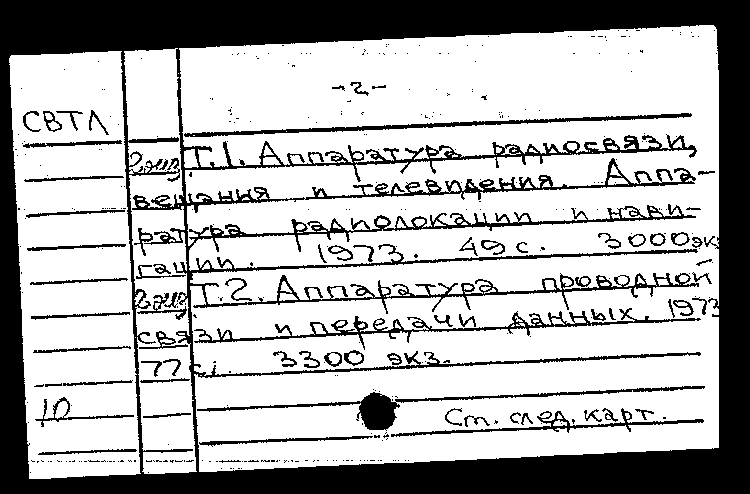 -2-
СВТЛ
2 экз Т.1. Аппаратура радиосвязи,
вещания и телевидения. Аппа-
ратура радиолокации и нави-
гации. 1973. 49 с. 3000 экз
2 экз Т.2. Аппаратура проводной
связи и передачи данных. 1973
77 с. 3300 экз.
10
См. след. карт.